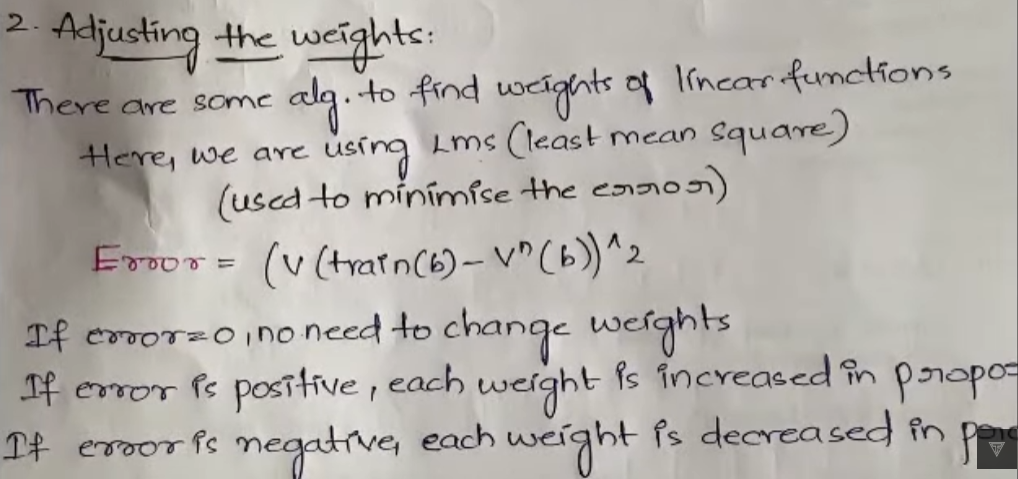 2. Adjusting the weights:
There are some alg. to find weights of linear functions
Here, we are using Lms (least mean square)
(used to minimise the error)
Error = (V (train(b) - V^(b))^2
If error=0, no need to change weights
If error is positive, each weight is increased in propo
If error is negative, each weight is decreased in